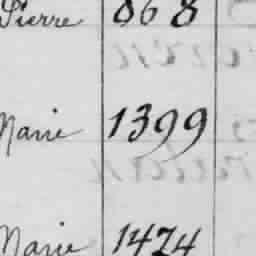 Pierre 868
Marie 1399
Marie 1424